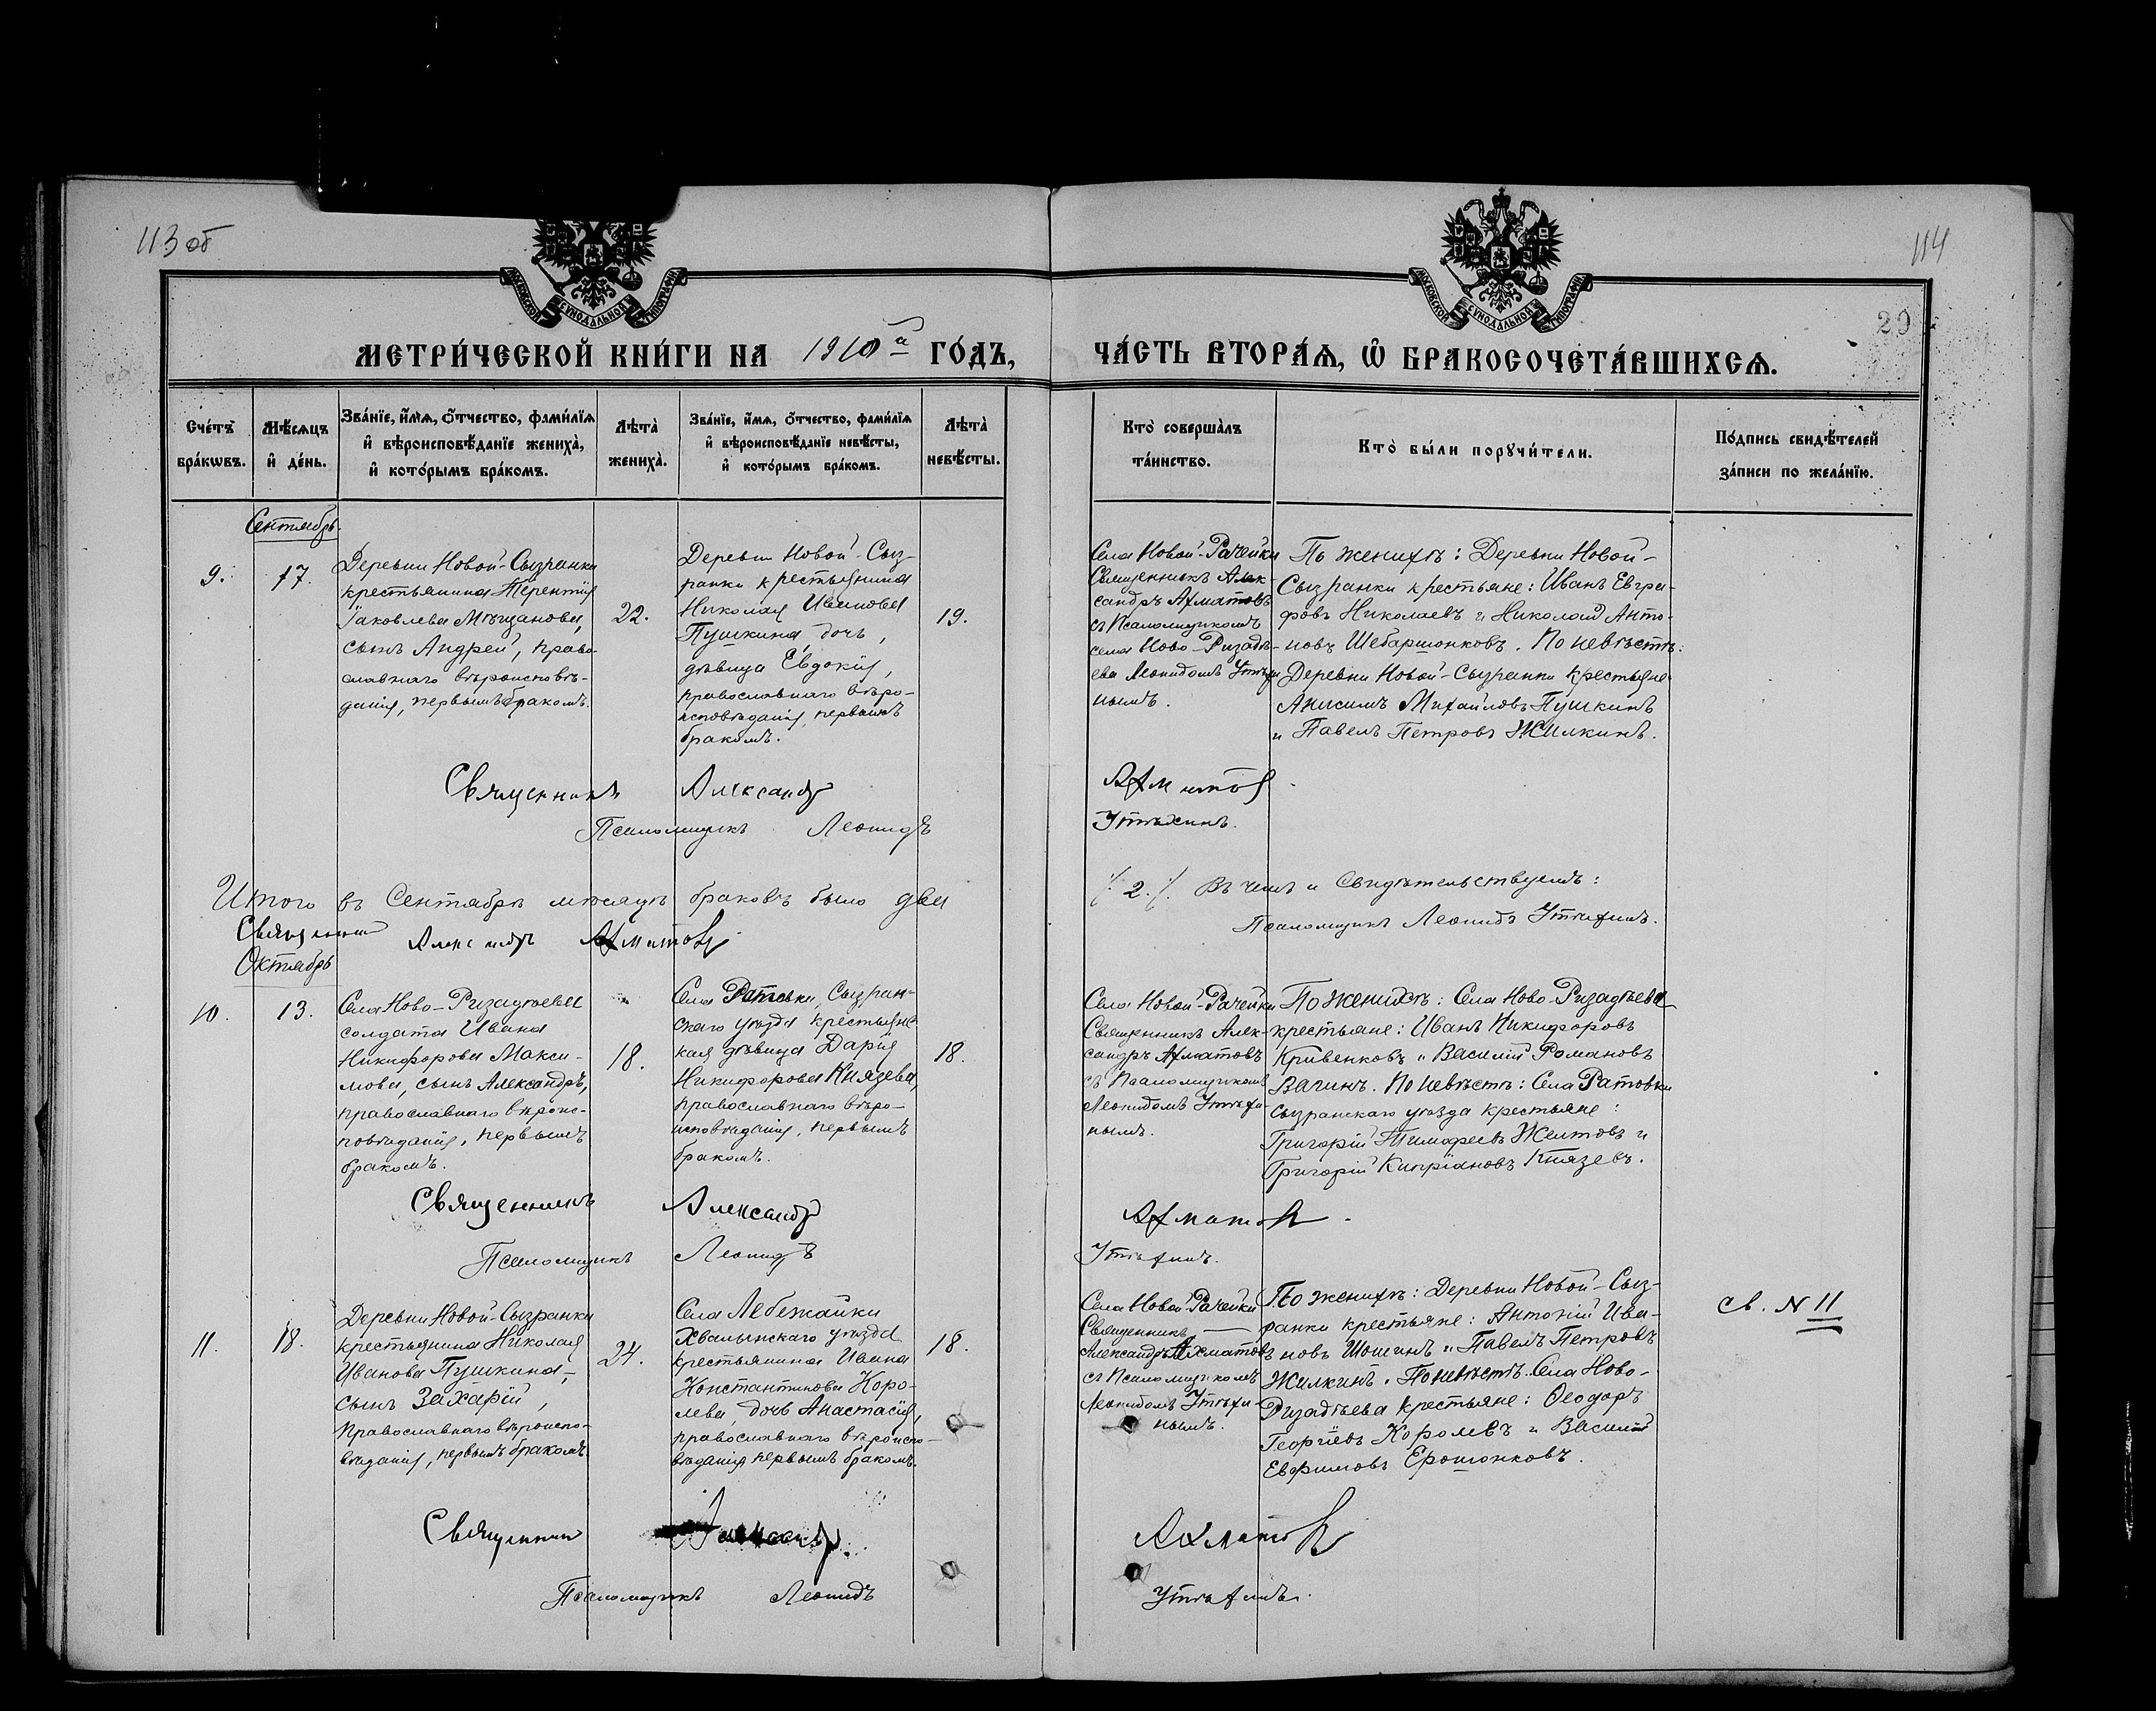 113 об
114
29
МОСКОВСКОЙ СѴНОДАЛЬНОЙ ТИПОГРАФІИ
МОСКОВСКОЙ СѴНОДАЛЬНОЙ ТИПОГРАФІИ
МЕТРИ́ЧЕСКОЙ КНИ́ГИ НА 1910 а ГО́ДЪ,
ЧА́СТЬ ВТОРА́Ѧ, Ѡ҆ БРАКОСОЧЕТА́ВШИХСѦ.
Сче́тъ
бра́кѡвъ.
Мѣ́сѧцъ
и҆ де́нь.
Зва́нїе, и҆́мѧ, ѻ҆́тчество, фами́лїѧ
и҆ вѣроисповѣ́данїе жениха̀,
и҆ кото́рымъ бра́комъ.
Лѣта̀
жениха̀.
Зва́нїе, и҆́мѧ, ѻ҆́тчество, фами́лїѧ
и҆ вѣроисповѣ́данїе невѣ́сты,
и҆ кото́рымъ бра́комъ.
Лѣта̀
невѣ́сты.
Кто̀ соверша́лъ
та́инство.
Кто̀ бы́ли порꙋчи́тели.
По́дпись свидѣ́телей
за́писи по жела́нїю.
Сентябрь.
9.
17.
Деревни Новой-Сызранки
крестьянина Терентія
Іаковлева Мѣщанова,
сынъ Андрей, право-
славнаго вѣроисповѣ-
данія, первымъ бракомъ.
22.
Деревни Новой-Сыз-
ранки крестьянина
Николая Иванова
Пушкина, дочь,
дѣвица Евдокія,
православнаго вѣро-
исповѣданія, первымъ
бракомъ.
19.
Села Новой-Рачейки
Священникъ Алек-
сандръ Ахматовъ
съ Псаломщикомъ
села Ново-Ризадѣ-
ева Леонидомъ Утѣхи-
нымъ.
По женихѣ: Деревни Новой-
Сызранки крестьяне: Иванъ Евгра-
фовъ Николаевъ и Николай Анто-
новъ Шебаршонковъ. По невѣстѣ:
Деревни Новой-Сызранки крестьяне
Анисимъ Михайловъ Пушкинъ
и Павелъ Петровъ Жилкинъ.
Священникъ Александр Ахматов
Псаломщикъ Леонидъ Утѣхинъ.
Итого въ Сентябрѣ мѣсяцѣ браковъ было два /. 2. /. Въ чемъ и свидѣтельствуемъ:
Священник Александр Ахматов Псаломщикъ Леонидъ Утѣхинъ.
Октябрь
10.
13.
Села Ново-Ризадѣева
солдата Ивана
Никифорова Макси-
мова, сынъ Александръ,
православнаго вѣроис-
повѣданія, первымъ
бракомъ.
18.
Села Ратовки, Сызран-
скаго уѣзда крестьянс-
кая дѣвица Дарія
Никифорова Князева,
православнаго вѣро-
исповѣданія, первымъ
бракомъ.
18.
Села Новой-Рачейки
Священникъ Алек-
сандръ Ахматовъ
съ Псаломщикомъ
Леонидомъ Утѣхи-
нымъ.
По женихѣ: Села Ново-Ризадѣева
крестьяне: Иванъ Никифоровъ
Кривенковъ и Василій Романовъ
Вагинъ. По невѣстѣ: Села Ратовки
Сызранскаго уѣзда крестьяне:
Григорій Тимофеевъ Желтовъ и
Григорій Кипріановъ Князевъ.
Священникъ Александр Ахматов.
Псаломщикъ Леонидъ Утѣхинъ.
11.
18.
Деревни Новой-Сызранки
крестьянина Николая
Иванова Пушкина,
сынъ Захарій,
православнаго вѣроиспо-
вѣданія, первымъ бракомъ.
24.
Села Лебежайки
Хвалынскаго уѣзда
крестьянина Ивана
Константинова Коро-
лева, дочь Анастасія,
православнаго вѣроиспо-
вѣданія первымъ бракомъ.
18.
Села Новой Рачейки
Священникъ —
Александръ Ахматовъ
съ Псаломщикомъ
Леонидомъ Утѣхи-
нымъ.
По женихѣ: Деревни Новой-Сыз-
ранки крестьяне: Антоній Ива-
новъ Шошинъ и Павелъ Петровъ
Жилкинъ. По невѣстѣ: Села Ново-
Ризадѣева крестьяне: Ѳеодоръ
Георгіевъ Королевъ и Василій
Евфимовъ Ерошонковъ.
св. № 11
Священник Александр. Ахматов
Псаломщикъ Леонидъ Утѣхинъ.